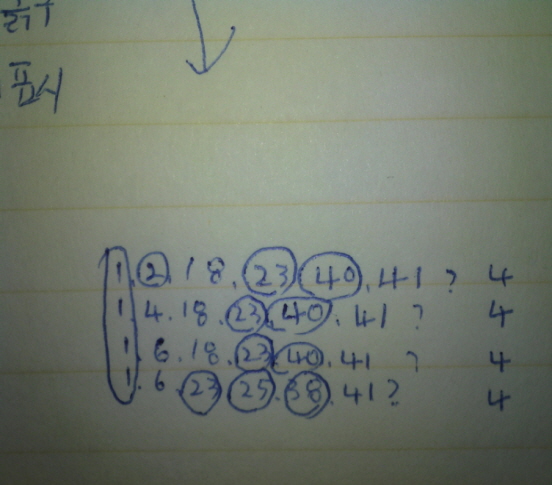 표시
1.2.18.23.40.41? 4
1.4.18.23.40.41? 4
1.6.18.23.40.41? 4
1.6.23.25.38.41? 4